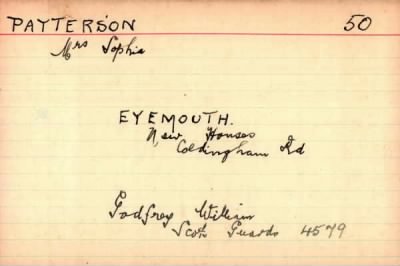 PATTERSON 50
Mrs Sophia
EYEMOUTH.
New Houses
Coldingham Rd
Godfrey William
Scots Guards 4579